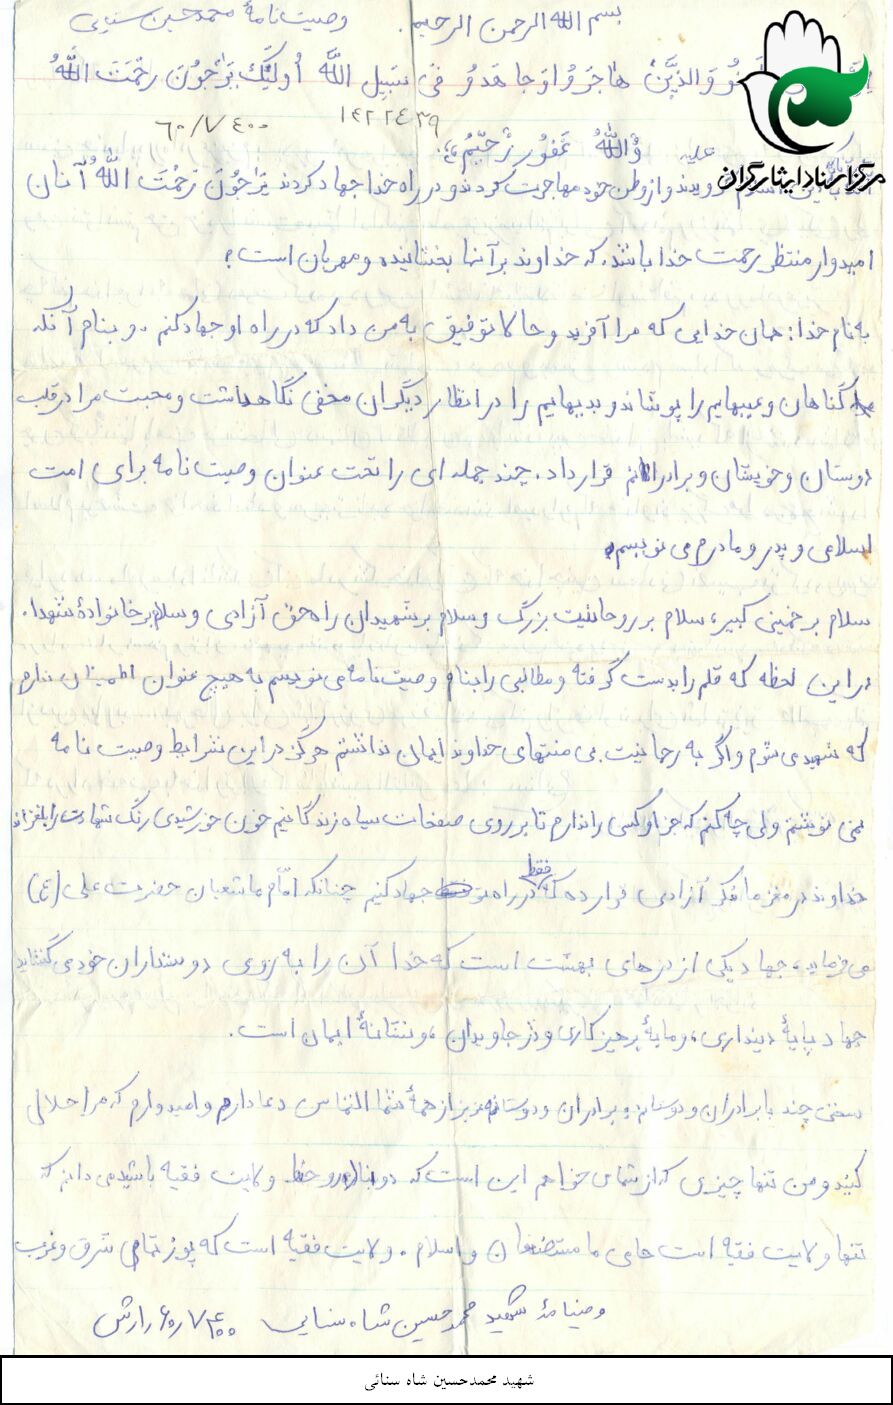 بسم الله الرحمن الرحیم. وصیت نامهٔ محمد حسین سنایی
وَالذَّینَ هاٰجَرَوُا وَ جاٰهَدوُ فی سَبیِل اللهَّ اُولئِکَ یَرْجوُنَ رَحْمَتَ اللهُّ
۶۰/۷۴۰۰ ۱۴۲۲۴۳۹
وَ اللهُّ غَفُور رَّحیمُ علیه
مرکز اسناد ایثارگران
اسلام گرویدند و از وطن خود مهاجرت کردند و در راه خدا جهاد کردند یَرْاجُونَ رَحْمَتَ اللهُّ آنان
امیدوار منتظر رحمت خدا باشند. که خداوند بر آنها بخشاینده و مهربان است.
به نام خدا: همان خدایی که مرا آفرید و حالا توفیق به من داد که در راه او جهاد کنم. و بنام آنکه
گناهان و عیبهایم را پوشاند و بدیهایم را در انظار دیگران مخفی نگاهداشت و محبت مرا در قلب
دوستان و خویشان و برادرانم قرار داد. چند جمله ای را تحت عنوان وصیت نامه برای امت
اسلامی و پدر و مادرم می نویسم.
سلام بر خمینی کبیر، سلام بر روحانیت بزرگ و سلام بر شهیدان راه حق آزادی و سلام بر خانوادهٔ شهدا.
در این لحظه که قلم را بدست گرفته و مطالبی را بنام وصیت نامه می نویسم به هیچ عنوان اطمینان ندارم
که شهید می شوم و اگر به رحمانیت بی منتهای خداوند ایمان نداشتم هرگز در این شرایط وصیت نامه
نمی نوشتم ولی چه کنم که جز او کسی را ندارم تا بر روی صفحات سیاه زندگانیم خون خورشیدی رنگ شهادت را بلغزاند
خداوند در مغز ما فکر آزادی قرار ده که فقط در راه تو جهاد کنیم چنانکه امّام ما شعیان حضرت علی (ع)
می فرماید. جهاد یکی از درهای بهشت است که خدا آن را به روی دوستاران خود می گشاید
جهاد پایهٔ دینداری، و مایهٔ پرهیزکاری و دژ جاویدان، و نشانهٔ ایمان است.
سخنی چند با برادران و دوستانم، برادران و دوستانم عزیز از همهٔ شما التماس دعا دارم و امیدوارم که مرا حلالی
کنید و من تنها چیزی که از شما می خواهم این است که دنباله رو خط ولایت فقیه باشید می دانم که
تنها ولایت فقیه است حامی ما مستضعفان و اسلام. ولایت فقیه است که پوز تمامی شرق و غرب
وصینامهٔ شهید محمد حسین شاه سنایی ۶۰/۷۴۰۰ ارتش
شهید محمدحسین شاه سنائی